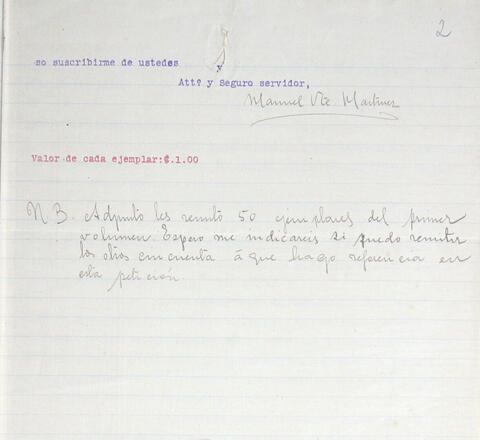 2
so suscribirme de ustedes y
Attº y Seguro servidor,
Manuel Vte Martinez
Valor de cada ejemplar:₡.1.00
N B. Adjunto les remito 50 ejemplares del primer
volumen. Espero me indicareis si puedo remitir
los otros cincuenta á que hago referencia en
esta petición.